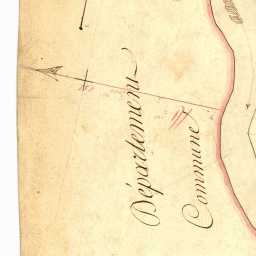 Département
Commune